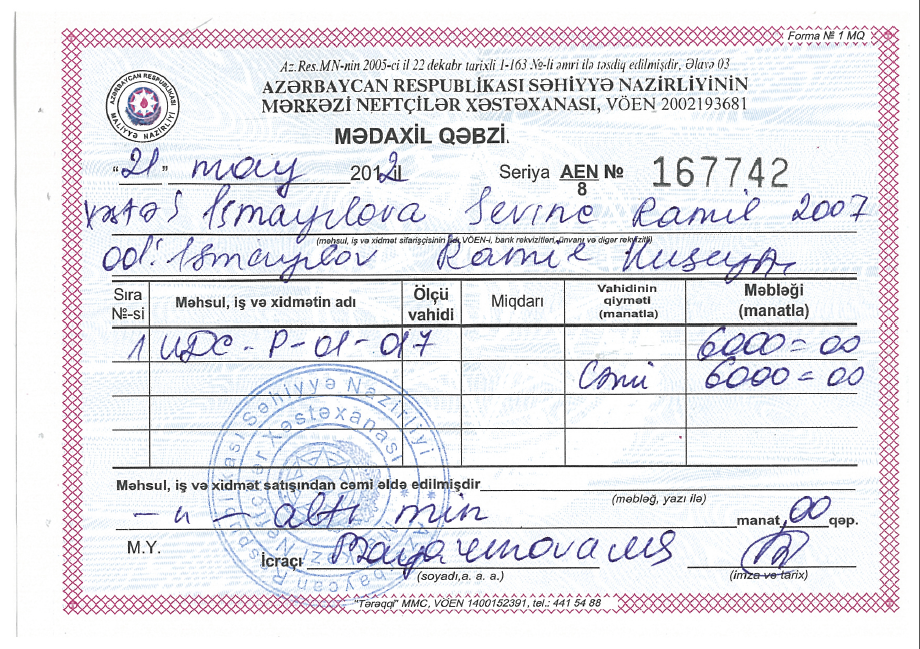 Forma № 1 MQ
Az.Res.MN-nin 2005-ci il 22 dekabr tarixli 1-163 №-li əmri ilə təsdiq edilmişdir, Əlavə 03
AZƏRBAYCAN RESPUBLİKASI SƏHİYYƏ NAZİRLİYİNİN
MƏRKƏZİ NEFTÇİLƏR XƏSTƏXANASI, VÖEN 2002193681
AZƏRBAYCAN RESPUBLİKASI
MALİYYƏ NAZİRLİYİ
MƏDAXİL QƏBZİ.
"21" may 2012 il Seriya AEN № 167742
8
Ismayılova Sevinc Ramil 2007
(məhsul, iş və xidmət sifarişçisinin adı, VÖEN-i, bank rekvizitləri, ünvanı və digər rekvizitli)
Ismayılov Ramil
Sıra №-si Məhsul, iş və xidmətin adı Ölçü vahidi Miqdarı Vahidinin qiyməti (manatla) Məbləği (manatla)
1 UDC - P - 01 - 017 6000 = 00
Cəmi 6000 = 00
Məhsul, iş və xidmət satışından cəmi əldə edilmişdir
(məbləğ, yazı ilə)
altı min manat 00 qəp.
M.Y. İcraçı
(soyadı,a. a. a.) (imza və tarix)
"Tərəqqi" MMC, VÖEN 1400152391, tel.: 441 54 88